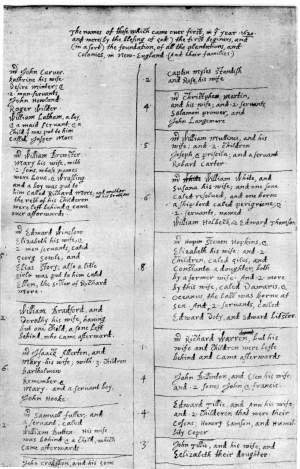 The names of those which came over first, in y^e year 1620.
and were (by the blesing of God) the first beginers, and
(in a sort) the foundation, of all the plantations, and
Colonies, in New-England (And their families)
m^r John Carver.
kathrine his wife.
Desire minter; &
2. man-servants
John Howland
Roger Wilder.
William Latham, a boy,
& a maid servant. & a
child y^t was put to him
called Jasper More
m^r William Brewster.
Mary his wife, with
2. sons, whose names
were Love, & Wrasling
and a boy was put to
him called Richard More; and another
the rest of his childeren
were left behind & came
over afterwards.
m^r Edward Winslow
Elizabeth his wife, &
2. men servants, caled
Georg Sowle, and
Elias Story; also a litle
girle was put to him caled
Ellen, the sister of Richard
More.
William Bradford, and
Dorothy his wife, having
but one child, a sone left
behind, who came afterwards.
m^r Isaack Allerton, and
Mary his wife; with 3. children
Bartholmew
Remember, &
Mary. and a servant boy,
John Hooke.
m^r Samuell Fuller; and
a servant, caled
William Butten. His wife
was behind & a child, which
came afterwards.
John Crakston, and his sone
2
Captin Myles Standish
and Rose, his wife
4
m^r Christpher Martin,
and his wife; and 2. servants,
Salamon prower, and
John Langemore
5
m^r William Mullines, and his
wife; and 2. Children
Joseph, & priscila; and a servant
Robart Carter.
6
m^r William White, and
Susana his wife; and one sone
caled resolved, and one borne
a ship-bord caled perigriene; &
2. servants, named
William Holbeck, & Edward Thomson
8
m^r Steven Hopkins, &
Elizabeth his wife; and 2.
Children, caled Giles, and
Constanta a doughter, both
by a former wife. And 2. more
by this wife, caled Damaris, &
Oceanus, the last was borne at
sea. And 2. servants, called
Edward Doty, and Edward Litster.
1
m^r Richard Warren, but his
wife and Children were lefte
behind and came afterwards
4
John Billinton, and Elen his wife;
and 2. sones John, & Francis.
4
Edward Tillie, and Ann his wife;
and 2. Childeren that were their
Cossens; Henery Samson, and Humili-
lity Coper
3
John Tillie, and his wife; and
Eelizabeth their doughter